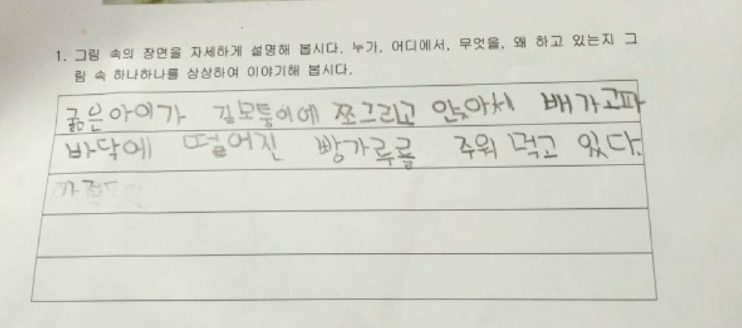 1. 그림 속의 장면을 자세하게 설명해 봅시다. 누가, 어디에서, 무엇을, 왜 하고 있는지 그
림 속 하나하나를 상상하여 이야기해 봅시다.
굶은아이가 길모퉁이에 쪼그리고 앉아서 배가고파
바닥에 떨어진 빵가루를 주워 먹고 있다.